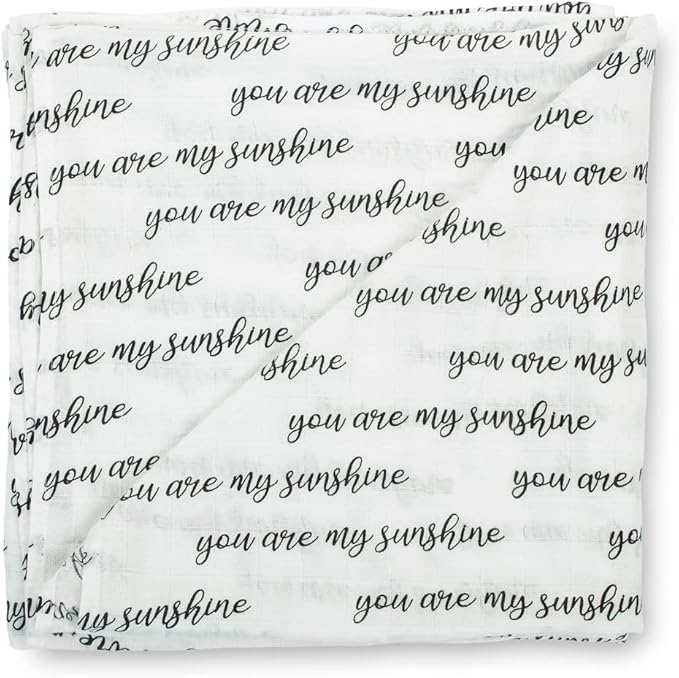 you are my sunshine you are my
you are my sunshine my
nshine you are my sunshine shine
you are my sunshine you
you are my
you are my sunshine
shine you
my sunshine you a
you are my sunshine
are my sunshine you are my su
shine
nshine you are my sunshine
you are
you are my sunshine you are
you are my sunshine yo
my sunshine you are my sunshine